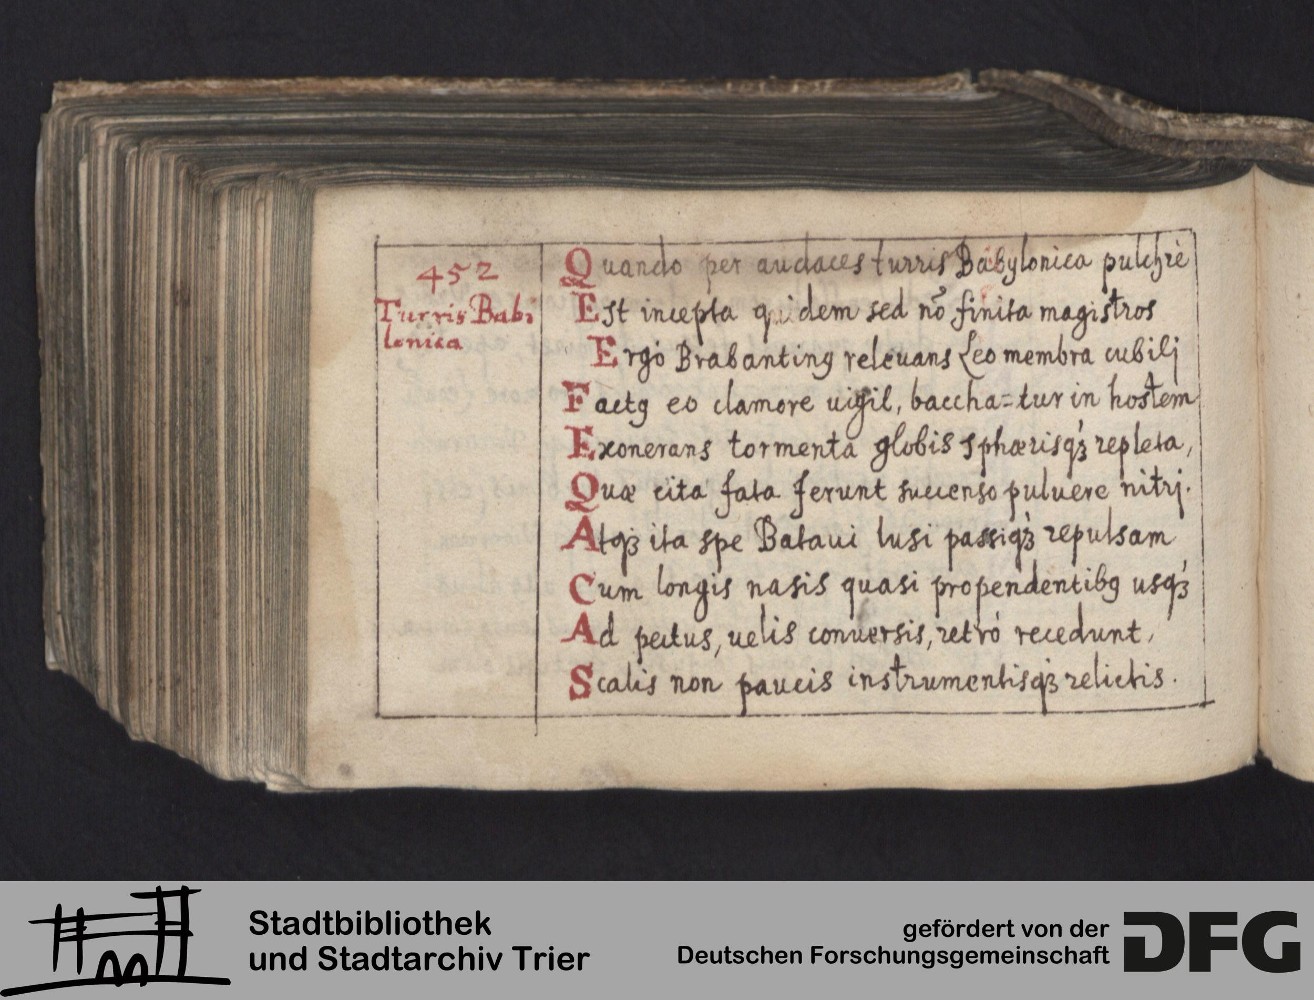 452
Turris Babi
lonica
Quando per audaces turris Babylonica pulchrè
Est incepta quidem sed nō finita magistros
Ergò Brabantinꝯ releuans Leo membra cubilj
Factꝯ eo clamore uigil, baccha=tur in hostem
Exonerans tormenta globis sphærisqꝫ́ repleta,
Quæ cita fata ferunt succenso puluere nitrj.
Atqꝫ ita spe Bataui lusi passiqꝫ́ repulsam
Cum longis nasis quasi propendentibꝯ usqꝫ́
Ad pectus, uelis conuersis, retró recedunt,
Scalis non paucis instrumentisqꝫ́ relictis.
Stadtbibliothek
und Stadtarchiv Trier
gefördert von der
Deutschen Forschungsgemeinschaft
DFG